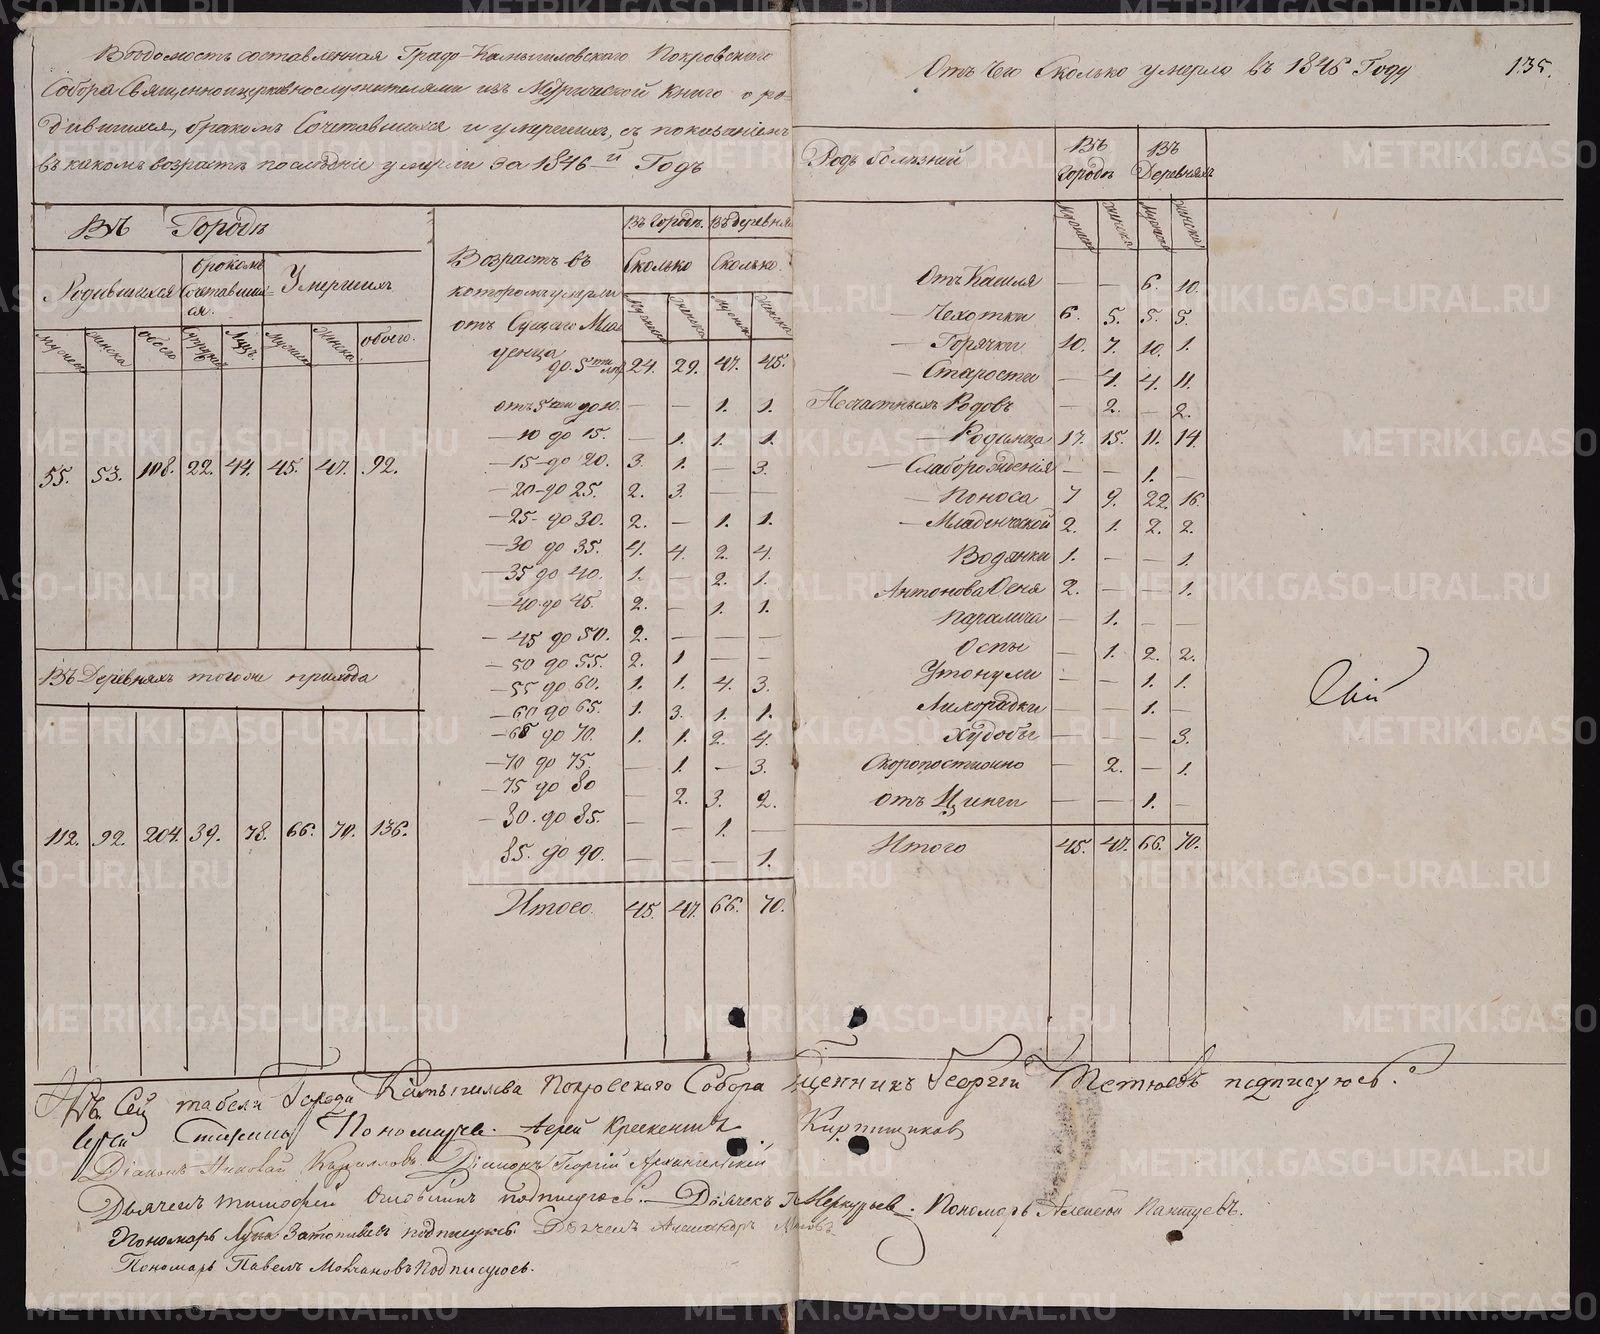 Ведомость составленная Градо-Камышловского Покровского
Собора Священноцерковнослужителями изъ Метрической книги о ро-
дившихся, бракомъ Сочетавшихся и умершихъ, съ показаніемъ
въ какомъ возрастѣ последніе умерли за 1846-й Годъ
Въ Городѣ
Родившихся
бракомъ Сочетавших-ся.
Умершихъ
мужеска женска обоего супруж. Лицъ. мужска женска обоего.
55. 53. 108. 22. 44. 45. 47. 92.
Въ Деревняхъ тогоже прихода
112. 92. 204. 39. 78. 66. 70. 136.
Возрастъ въ
которомъ умерли
Въ Городѣ. Въ деревня
Сколько Сколько.
мужеска женска мужеска женска
отъ Сущаго Мла-
денца
до 5ти лѣт 24. 29. 47. 45.
отъ 5ти до 10. — — 1. 1.
— 10 до 15. — 1. 1. 1.
— 15 — до 20. 3. 1. — 3.
— 20 — до 25. 2. 3. — —
— 25 — до 30. 2. — 1. 1.
— 30 до 35. 4. 4. 2. 4.
— 35 до 40. 1. — 2. 1.
— 40 до 45. 2. — 1. 1.
— 45 до 50. 2. — — —
— 50 до 55. 2. 1 — —
— 55 до 60. 1. 1. 4. 3.
— 60 до 65. 1. 3. 1. 1.
— 65 до 70. 1. 1. 2. 4.
— 70 до 75. — 1. — 3.
— 75 до 80 — 2. 3. 2.
— 80. до 85. — — 1. —
85. до 90. — — — 1.
Итого. 45. 47. 66. 70.
Отъ чего Сколько умерло въ 1846 Году 135.
Родъ болѣзней
Въ Городѣ
Въ Деревняхъ
мужеска женска мужеска женска
Отъ Кашля — — 6. 10.
— Чехотки 6. 5. 5. 5.
— Горячки 10. 7. 10. 1.
— Старости — 4. 4. 11.
Несчастныхъ Родовъ — 2. — 2.
— Родимца 17. 15. 11. 14.
— Слаборожденія — — 1. —
— Поноса 7 9. 22. 16.
— Младенческой 2. 1. 2. 2.
Водянки 1. — — 1.
Антонова Огня 2. — — 1.
Паралича — 1. — —
Оспы — 1. 2. 2.
Утонули — — 1. 1.
Лихорадки — — 1. —
Худобы — — — 3.
Скоропостижно — 2. — 1.
отъ Цинги — — 1. —
Итого 45. 47. 66. 70.
Къ Сей табели Города Камышлова Покровскаго Собора щенникъ Георгій Тетюевъ подписуюсь.
Іерей Стефанъ Пономарев. Іерей Крескентъ Кирпищиков
Діаконъ Николай Кирилловъ Діаконъ Георгій Архангельскій
Дьячекъ Тимофей подписуюсь. — Дьячекъ Меркурьев. Пономарь Алексей Пантуевъ.
Пономарь Лука Затопляевъ подписуюсь. Дьячекъ Александръ
Пономарь Павелъ Молчановъ Подписуюсь.
METRIKI.GASO-URAL.RU